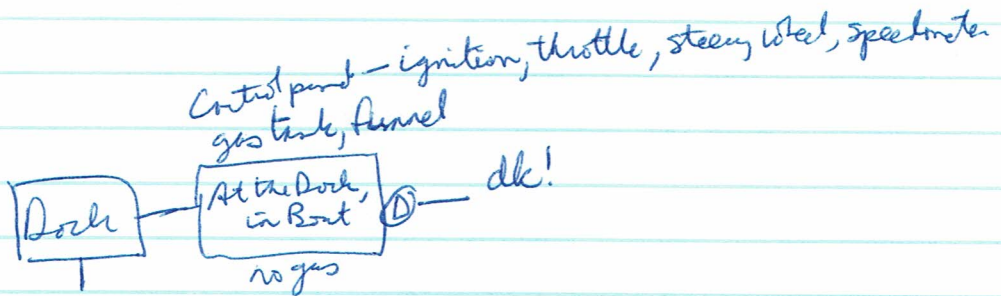 Control panel - ignition, throttle, steering wheel, speedometer
gas tank, funnel
Dock
At the Dock,
in Boat
D
dk!
no gas